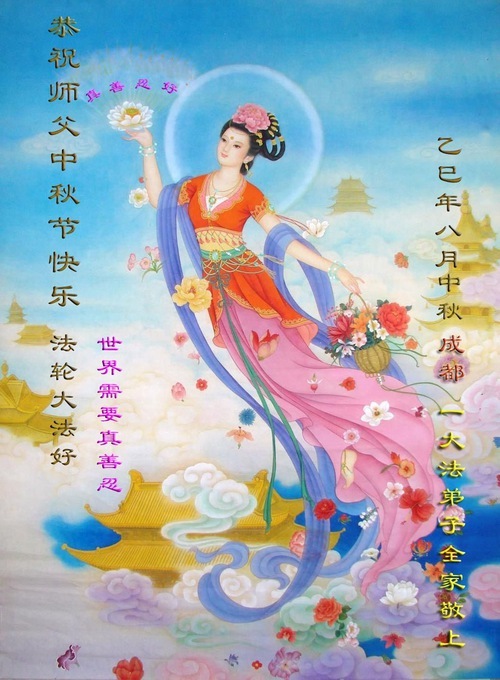 恭祝师父中秋节快乐 法轮大法好
真善忍好
世界需要真善忍
乙巳年八月中秋 成都 一大法弟子全家敬上